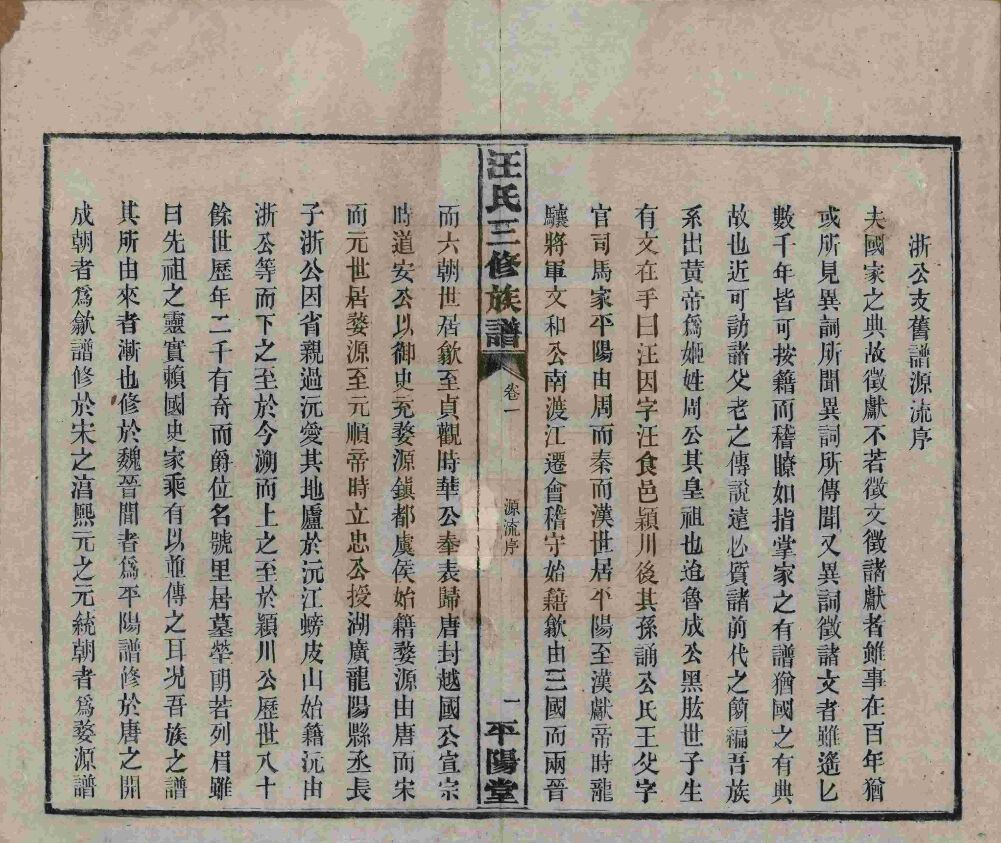 浙公支舊譜源流序
夫國家之典故徵獻不若徵文徵諸獻者雖事在百年猶
或所見異詞所聞異詞所傳聞又異詞徵諸文者雖遙匕
數千年皆可按籍而稽瞭如指掌家之有譜猶國之有典
故也近可訪諸父老之傳說遠必質諸前代之簡編吾族
系出黃帝為姬姓周公其皇祖也迨魯成公黑肱世子生
有文在手曰汪因字汪食邑穎川後其孫誦公氏王父字
官司馬家平陽由周而秦而漢世居平陽至漢獻帝時龍
驤將軍文和公南渡江遷會稽守始籍歙由三國而兩晉
汪氏三修族譜
卷一
源流序
一
平陽堂
而六朝世居歙至貞觀時華公奉表歸唐封越國公宣宗
時道安公以御史充婺源鎮都虞侯始籍婺源由唐而宋
而元世居婺源至元順帝時立忠公授湖廣龍陽縣丞長
子浙公因省親過沅愛其地廬於沅江螃皮山始籍沅由
浙公等而下之至於今溯而上之至於穎川公歷世八十
餘世歷年二千有奇而爵位名號里居墓塋朗若列眉雖
曰先祖之靈實賴國史家乘有以並傳之耳況吾族之譜
其所由來者漸也修於魏晉間者為平陽譜修於唐之開
成朝者為歙譜修於宋之淳熙元之元統朝者為婺源譜